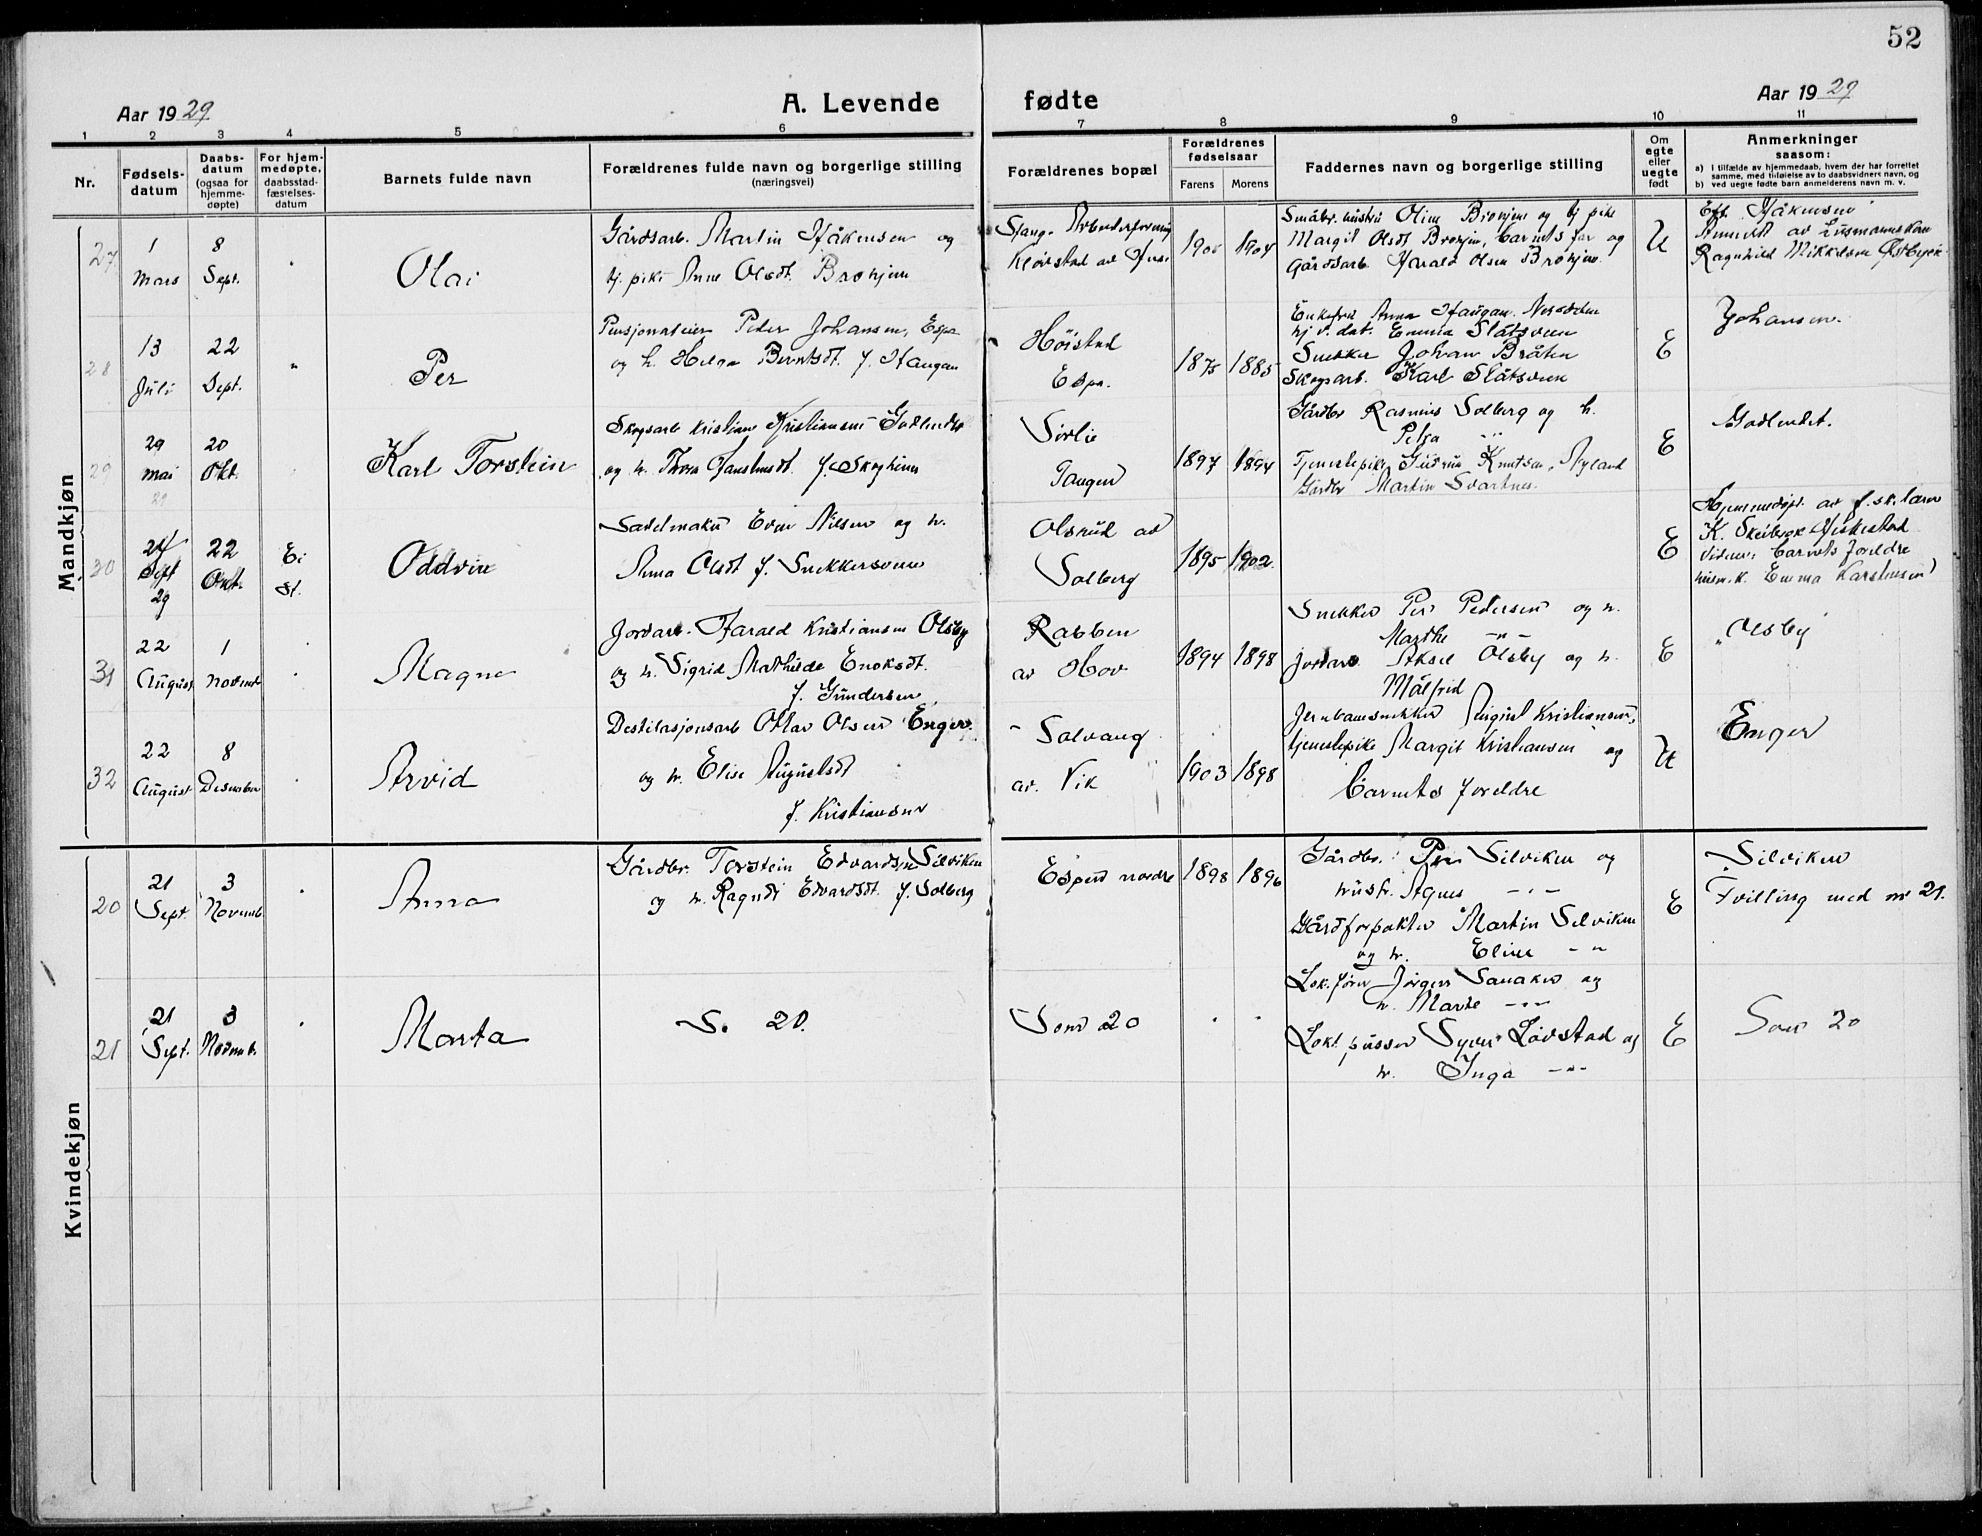 52
Aar 1929
A. Levende fødte
Aar 1929
1 2 3 4 5 6 7 8 9 10 11
Nr.
Fødsels-
datum
Daabs-
datum
(ogsaa for
hjemme-
døpte)
For hjem-
medøpte,
daabsstad-
fæstelses-
datum
Barnets fulde navn
Forældrenes fulde navn og borgerlige stilling
(næringsvei)
Forældrenes bopæl
Forældrenes
fødselsaar
Farens Morens
Faddernes navn og borgerlige stilling
Om
egte
eller
uegte
født
Anmerkninger
saasom:
a) i tilfælde av hjemmedaab, hvem der har forrettet
samme, med tilføielse av to daabsvidners navn, og
b) ved uegte fødte barn anmelderens navn m. v.
Mandkjøn
27
1
Mars
8
Sept.
Olai
Gårdsarb. Martin Håkensen og
tj. pike Anne Olsdt. Brohjem
Stang. Arbeiderforening
Kløvstad av
1904
Småbr. hustru Oline Brohjem og tj pike
Margit Olsdt Brohjem, barnets far og
Gårdsarb. Harald Olsen Brohjem.
U
Eft. Håkensen
Anmeldt av
Ragnhild Mikkelsen
28
13
Juli
22
Sept.
"
Per
Pensjonateier Peder Johansen, Espa
og h. Helga Berntsdt. f. Haugan
Høistad
Espa.
1875 1885
Enkefru Anna Haugan. Nesodden
hj v. dat. Emma Slåtsveen
Snekker Johan Bråten
Skogsarb. Karl Slåtsveen
E
Johansen.
29
29
mai
20
Okt.
Karl Torstein
Skogsarb Kristian Kristiansen
og h. Thora f. Skogheim
Sørlie
Tangen
1897 1894
Gårdbr Rasmus Solberg og h.
Petra "
Tjenestepike Gudrun Knutsen, Nyland
Gårdbr Martin Svartnes.
E
30
24
Sept
29
22
Okt.
Ei
st.
Oddvin
Sadelmaker Even Nilsen og h.
Anna Olsdt f. Snekkersveen
Olsrud av
Solberg
1895 1902.
E
Hjemmedøpt av f. sk. lærer
K. Skeiberg
Vidner: barnets foreldre
husm.k. Emma Karstensen
31
22
August
1
Novemb
Magne
Jordarb. Harald Kristiansen Olsby
og h. Sigrid Mathilde Enoksdt.
f. Gundersen
Rabben
av Hov
1894 1898
Snekker Per Pedersen og h.
Marthe —"—
Jordarb Aksel Olsby og h.
Målfrid
E
"Olsby
32
22
August
8
Desember
Arvid
Destilasjonsarb Ottar Olsen Enger.
og h. Elise Augustdt
f. Kristiansen
Solvang
av. Vik
1903 1898
Jernbanesnekker August Kristiansen,
tjenestepike Margit Kristiansen og
barnets foreldre
U
Enger
Kvindekjøn
20
21
Sept.
3
Novemb
Anna
Gårdbr. Torstein Edvardsen Silviken
og h. Ragndi Edvardsdt. f. Solberg
Espen nordre
1898 1896
Gårdbr. Per Silviken og
hustr. Agnes —"—
Gårdforpakter Martin Silviken
og h. Eline —"
E
Silviken
Tvilling med nr 21.
21
21
Sept.
3
Novemb.
Marta
S. 20.
Som 20
Lok.fører Jørgen Sanaker og
h. Marte —"—
Lokt. pusser Syver Løvstad og
h. Inga —"—
E
Som 20